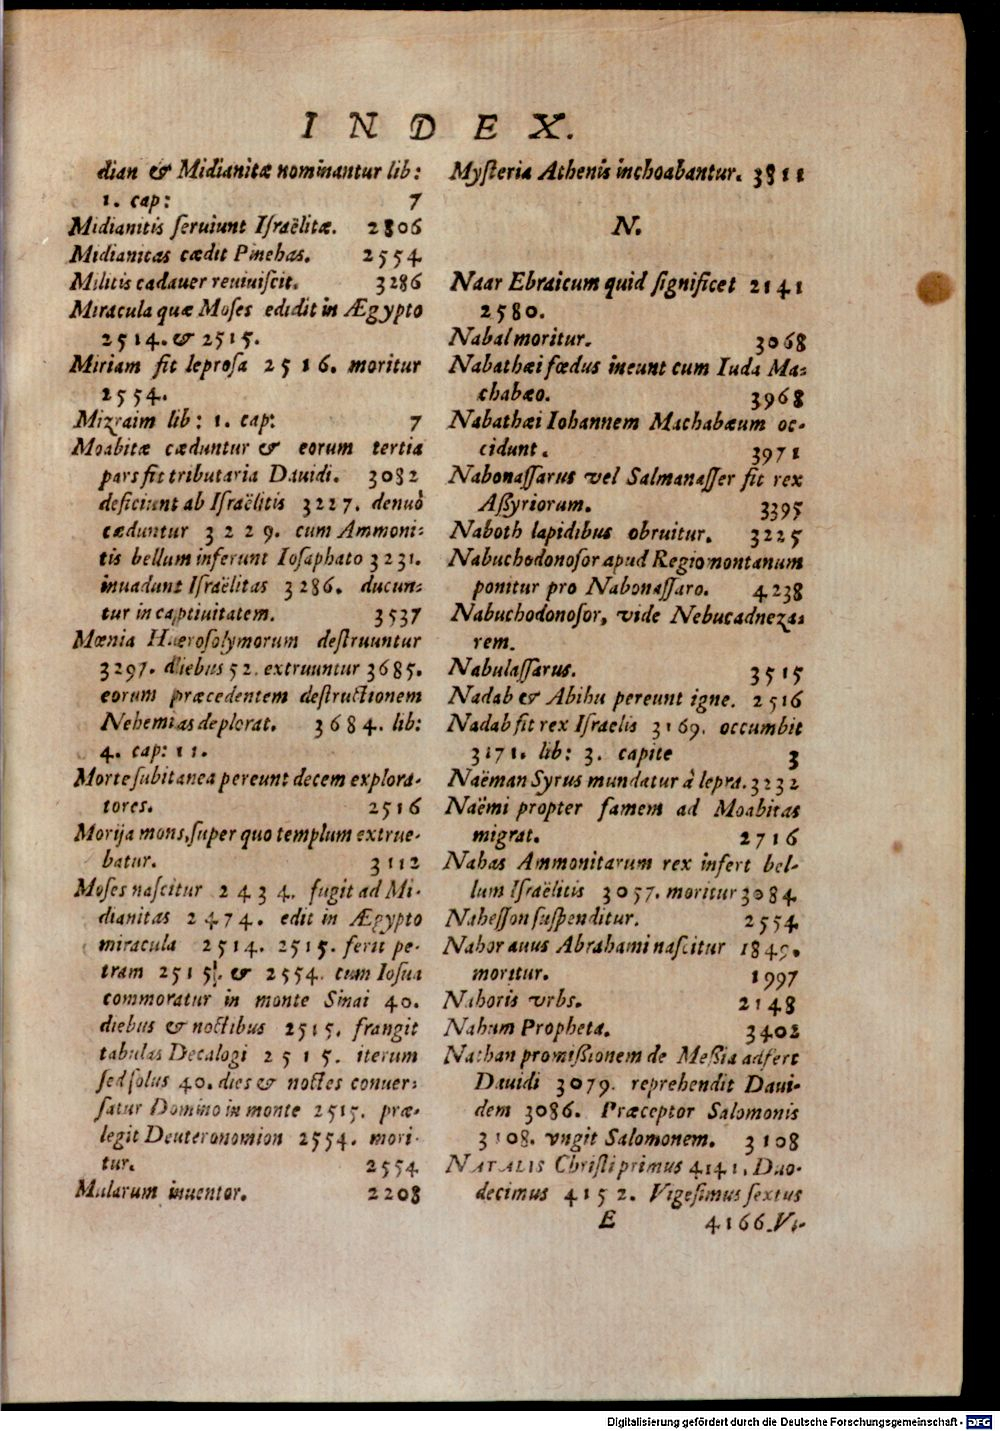 INDEX.
dian & Midianitæ nominantur lib:
1. cap: 7
Midianitis seruiunt Israëlitæ. 2806
Midianitas cædit Pinehas. 2554
Militis cadauer reuiuiscit. 3286
Miracula quæ Moses edidit in Ægypto
2514. & 2515.
Miriam fit leprosa 2516. moritur
2554.
Mizraim lib: 1. cap: 7
Moabitæ cæduntur & eorum tertia
pars fit tributaria Dauidi. 3082
deficiunt ab Israëlitis 3227. denuò
cæduntur 3229. cum Ammoni-
tis bellum inferunt Iosaphato 3231.
inuadunt Israëlitas 3286. ducun-
tur in captiuitatem. 3537
Mœnia Hierosolymorum destruuntur
3297. diebus 52. extruuntur 3685.
eorum præcedentem destructionem
Nehemias deplorat. 3684. lib:
4. cap: 11.
Morte subitanea pereunt decem explora-
tores. 2516
Morija mons, super quo templum extrue-
batur. 3112
Moses nascitur 2434. fugit ad Mi-
dianitas 2474. edit in Ægypto
miracula 2514. 2515. ferit pe-
tram 2515. & 2554. cum Iosua
commoratur in monte Sinai 40.
diebus & noctibus 2515. frangit
tabulas Decalogi 2515. iterum
sed solus 40. dies & noctes conuer-
satur Domino in monte 2515. præ-
legit Deuteronomion 2554. mori-
tur. 2554
Mularum inuentor. 2208
Mysteria Athenis inchoabantur. 3811
N.
Naar Ebraicum quid significet 2141
2580.
Nabal moritur. 3068
Nabathæi fœdus ineunt cum Iuda Ma-
chabæo. 3968
Nabathæi Iohannem Machabæum oc-
cidunt. 3971
Nabonassarus vel Salmanasser fit rex
Aßyriorum. 3395
Naboth lapidibus obruitur. 3225
Nabuchodonosor apud Regiomontanum
ponitur pro Nabonassaro. 4238
Nabuchodonosor, vide Nebucadneza-
rem.
Nabulassarus. 3515
Nadab & Abihu pereunt igne. 2516
Nadab fit rex Israelis 3169. occumbit
3171. lib: 3. capite 3
Naëman Syrus mundatur à lepra. 3232
Naëmi propter famem ad Moabitas
migrat. 2716
Nahas Ammonitarum rex infert bel-
lum Israëlitis 3057. moritur 3084
Nahesson suspenditur. 2554
Nahor auus Abrahami nascitur 1849.
moritur. 1997
Nahoris vrbs. 2148
Nahum Propheta. 3402
Nathan promißionem de Meßia adfert
Dauidi 3079. reprehendit Daui-
dem 3086. Præceptor Salomonis
3108. vngit Salomonem. 3108
NATALIS Christi primus 4141. Duo-
decimus 4152. Vigesimus sextus
E 4166. Vi-
Digitalisierung gefördert durch die Deutsche Forschungsgemeinschaft - DFG